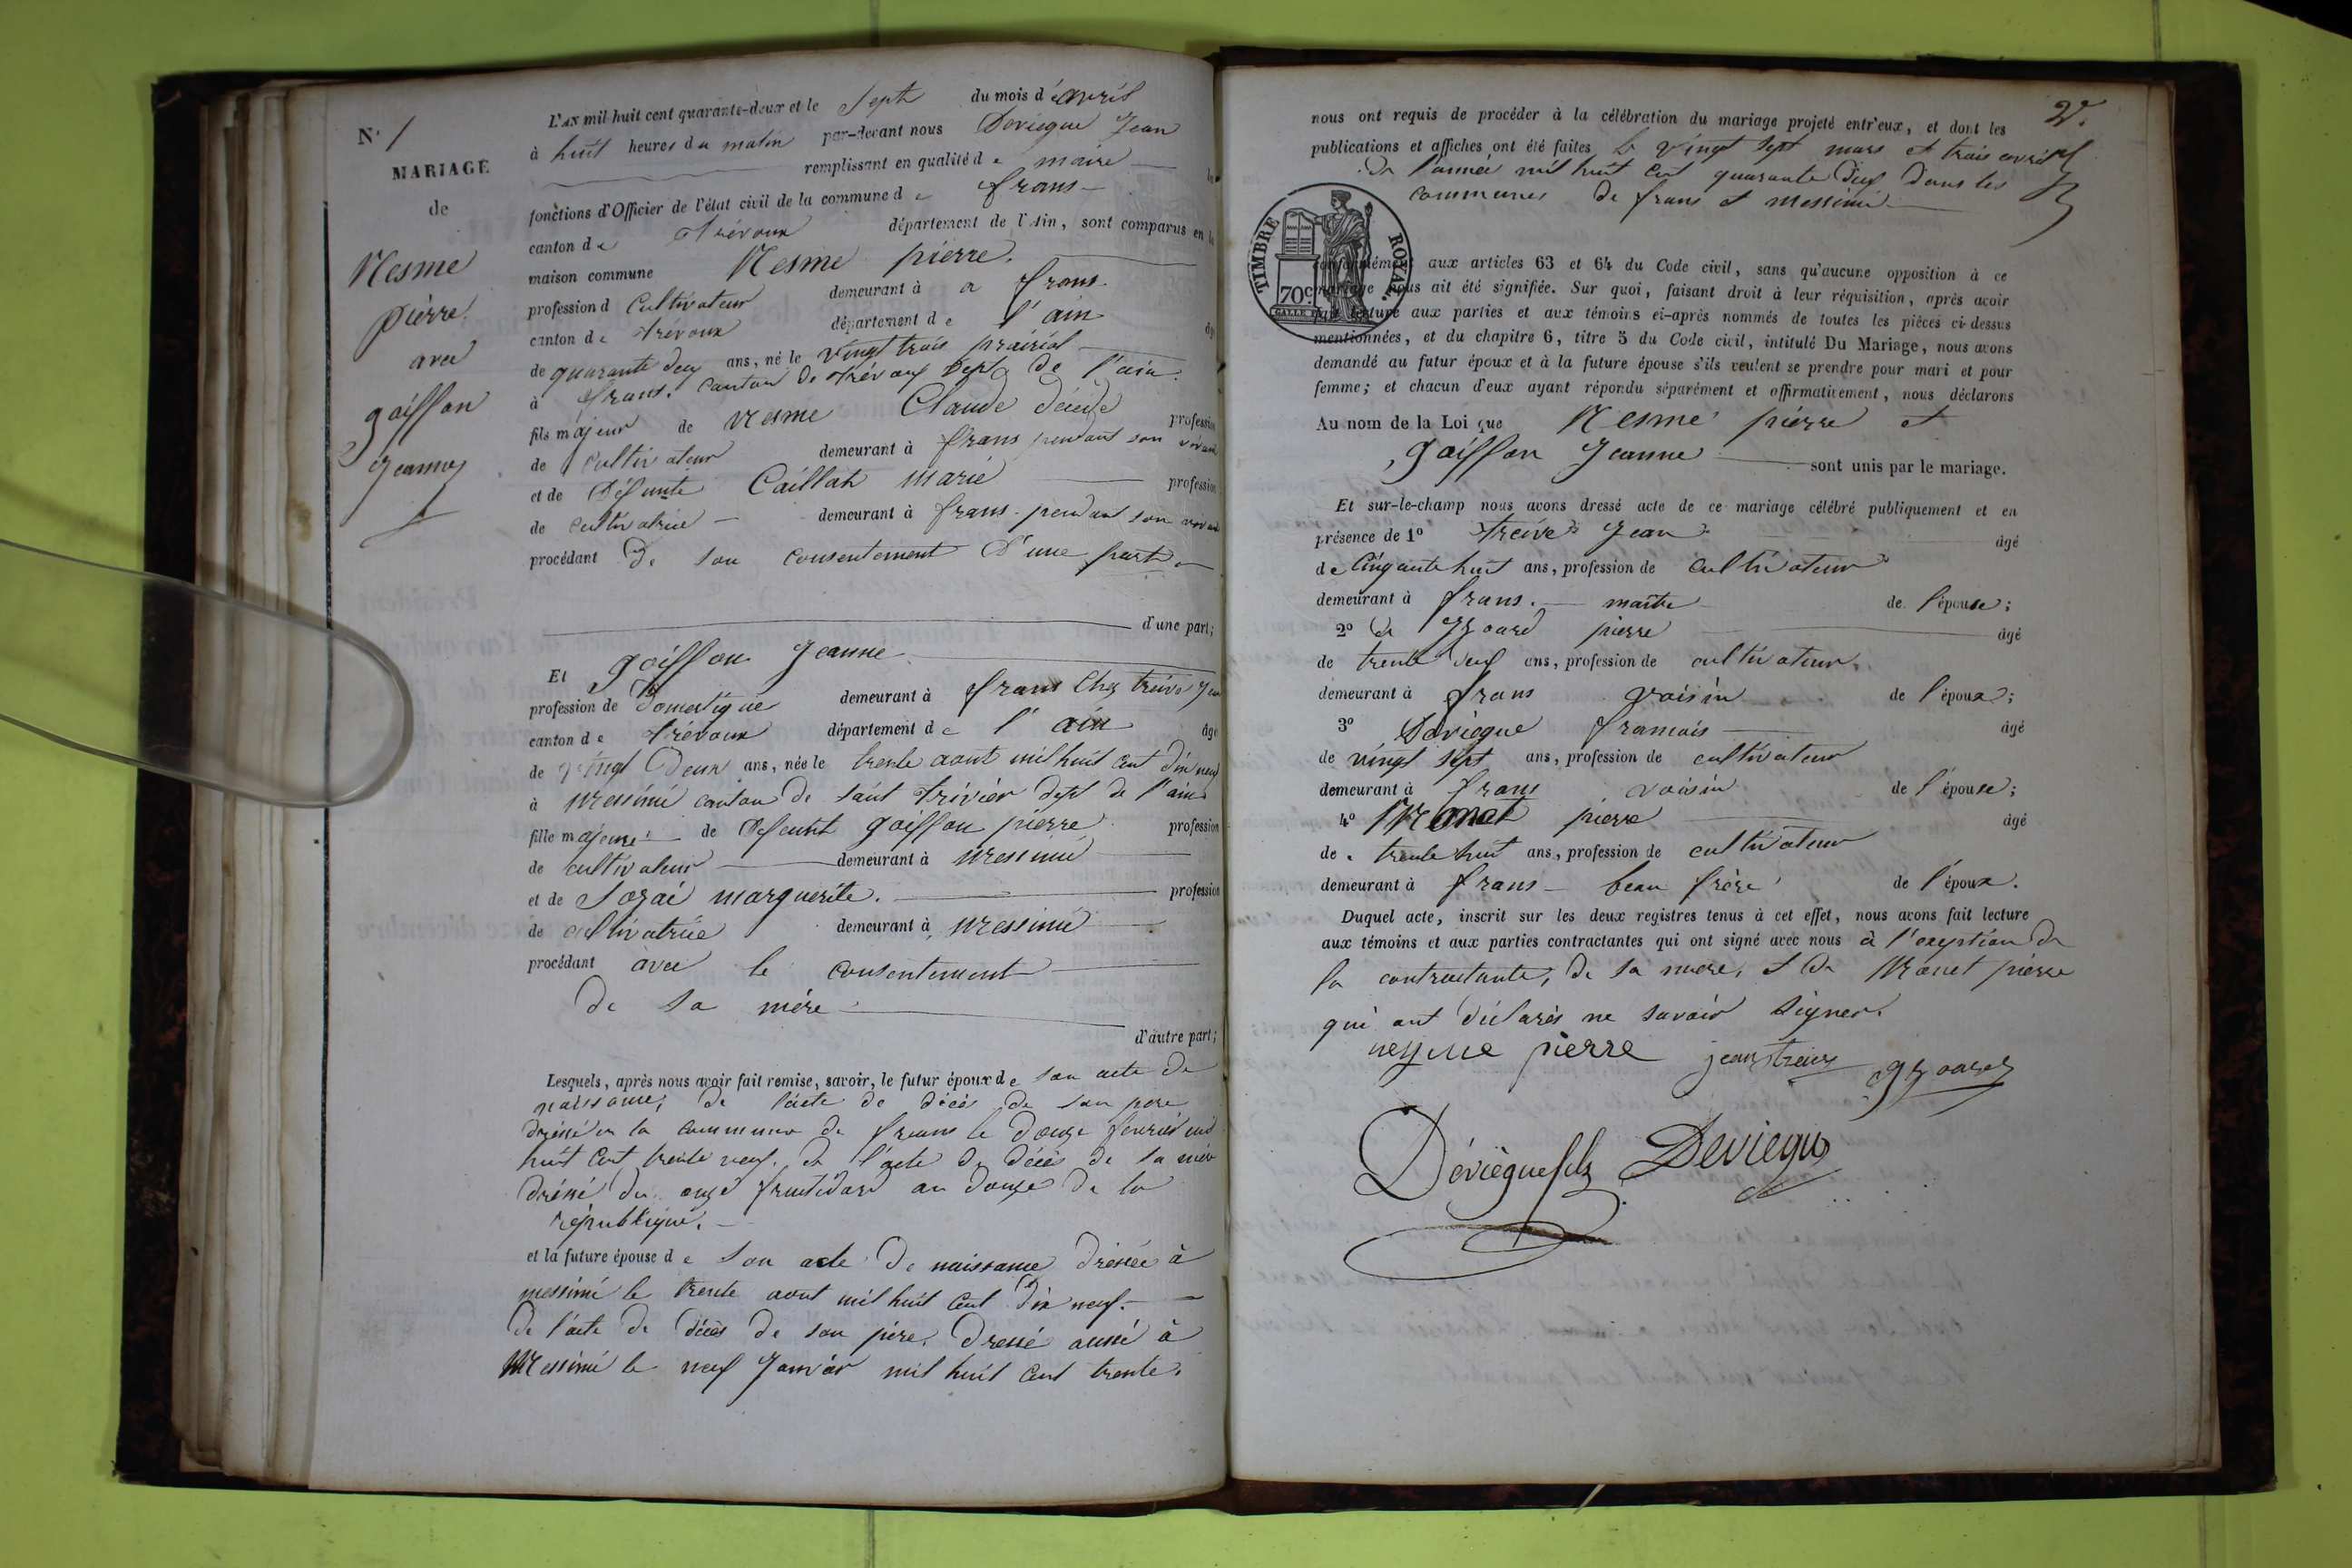 N.° 1
MARIAGE
de
Nesme
pierre
avec
goiffon
jeanne
L'AN mil huit cent quarante-deux et le sept du mois d'avril
à huit heures du matin par-devant nous Deviegue Jean
remplissant en qualité de maire les
fonctions d'Officier de l'état civil de la commune de frans
canton de trévoux département de l'Ain, sont comparus en la
maison commune Nesme pierre.
profession de Cultivateur demeurant à a frans
canton de trevoux département de l'ain âgé
de quarante deux ans, né le vingt trois prairial
à frans. canton de trévoux dept de l'ain.
fils majeur de Nesme Claude décédé profession
de cultivateur demeurant à frans pendant son vivant
et de défunte Caillat marie profession
de cultivatrice demeurant à frans pendant son vivant
procédant de son consentement d'une part
d'une part;
Et goiffon jeanne
profession de domestique demeurant à frans chez treive jean
canton de trévoux département de l'ain âgé
de vingt deux ans, née le trente aout mil huit cent dix neuf
à Messimi canton de saint trivier dept de l'ain
fille majeure de defeunt goiffon pierre profession
de cultivateur demeurant à Messimi
et de marguerite. profession
de cultivatrice demeurant à Messimi
procédant avec le consentement
de sa mére
d'autre part;
Lesquels, après nous avoir fait remise, savoir, le futur époux de son acte de
naissance, de l'acte de décès de son pere
dréssé en la commune de frans le douze fevrier mil
huit cent trente neuf. de l'acte de décès de sa mére
dréssé du onze fructidord an douze de la
république.
et la future épouse de son acte de naissance dréssée à
messimi le trente aout mil huit cent dix neuf.
de l'acte de décès de son pére. dressé aussi à
Messimi le neuf Janvier mil huit cent trente.
2e.
nous ont requis de procéder à la célébration du mariage projeté entr'eux, et dont les
publications et affiches ont été faites le vingt sept mars et trois avril
de l'année mil huit cent quarante deux dans les
communes de frans et messimi
TIMBRE ROYAL.
70c
conformément aux articles 63 et 64 du Code civil, sans qu'aucune opposition à ce
mariage nous ait été signifiée. Sur quoi, faisant droit à leur réquisition, après avoir
fait lecture aux parties et aux témoins ci-après nommés de toutes les pièces ci-dessus
mentionnées, et du chapitre 6, titre 5 du Code civil, intitulé Du Mariage, nous avons
demandé au futur époux et à la future épouse s'ils veulent se prendre pour mari et pour
femme; et chacun d'eux ayant répondu séparément et affirmativement, nous déclarons
Au nom de la Loi que Nesme pierre et
goiffon Jeanne sont unis par le mariage.
Et sur-le-champ nous avons dressé acte de ce mariage célébré publiquement et en
présence de 1° treive Jean âgé
de Cinquante huit ans, profession de cultivateur
demeurant à frans. maître de l'épouse;
2° de Gzoard pierre âgé
de trente deux ans, profession de cultivateur.
demeurant à frans voisin de l'époux;
3° Deviegue francois âgé
de vingt sept ans, profession de cultivateur
demeurant à frans voisin de l'épouse;
4° Monet pierre âgé
de trente huit ans, profession de cultivateur
demeurant à frans beau frère de l'époux.
Duquel acte, inscrit sur les deux registres tenus à cet effet, nous avons fait lecture
aux témoins et aux parties contractantes qui ont signé avec nous à l'exeption de
la contractante, de sa mere, et de Monet pierre
qui ont déclarés ne savoir signer.
nesme pierre jean treive gzoard
Dévièguefils Deviegue